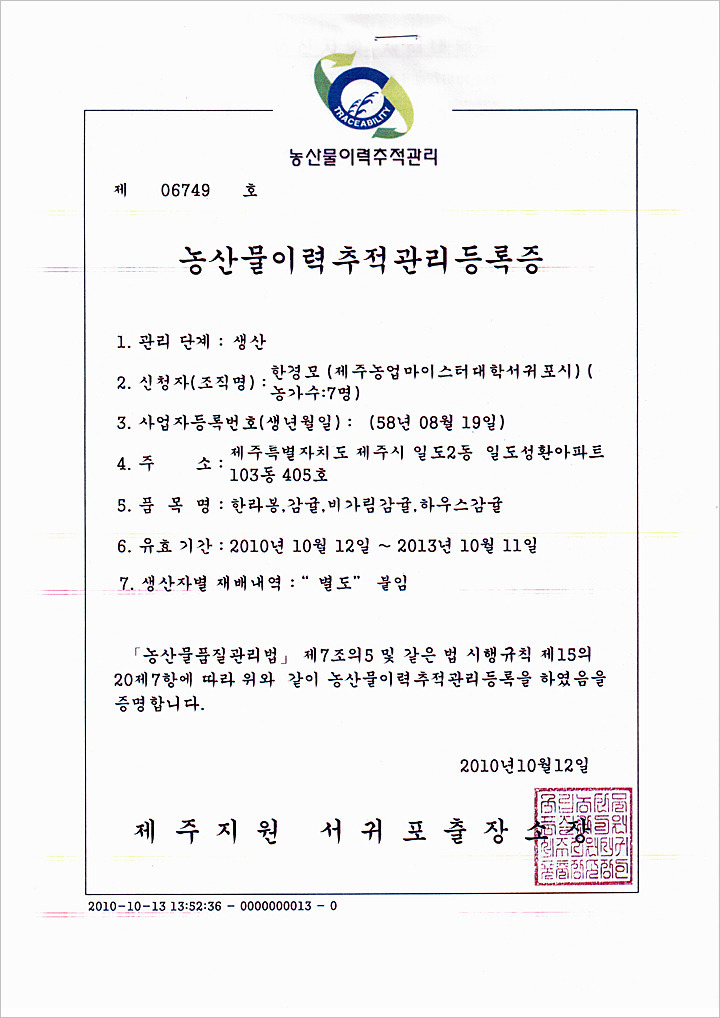 TRACEABILITY
농산물이력추적관리
제 06749 호
농산물이력추적관리등록증
1. 관리 단계 : 생산
2. 신청자(조직명) : 한경모 (제주농업마이스터대학서귀포시) (
농가수:7명)
3. 사업자등록번호(생년월일) : (58년 08월 19일)
4. 주 소 : 제주특별자치도 제주시 일도2동 일도성환아파트
103동 405호
5. 품 목 명 : 한라봉,감귤,비가림감귤,하우스감귤
6. 유효 기간 : 2010년 10월 12일 ~ 2013년 10월 11일
7. 생산자별 재배내역 : “ 별도” 붙임
「농산물품질관리법」 제7조의5 및 같은 법 시행규칙 제15의
20제7항에 따라 위와 같이 농산물이력추적관리등록을 하였음을
증명합니다.
2010년10월12일
제 주 지 원 서 귀 포 출 장 소 장
2010-10-13 13:52:36 - 0000000013 - 0